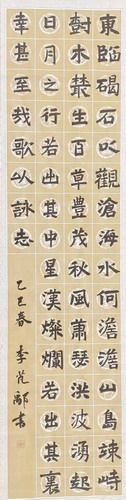 東臨碣石以觀滄海水何澹澹山島竦峙
樹木叢生百草豐茂秋風蕭瑟洪波湧起
日月之行若出其中星漢燦爛若出其裏
幸甚至哉歌以詠志 乙巳春 李 書